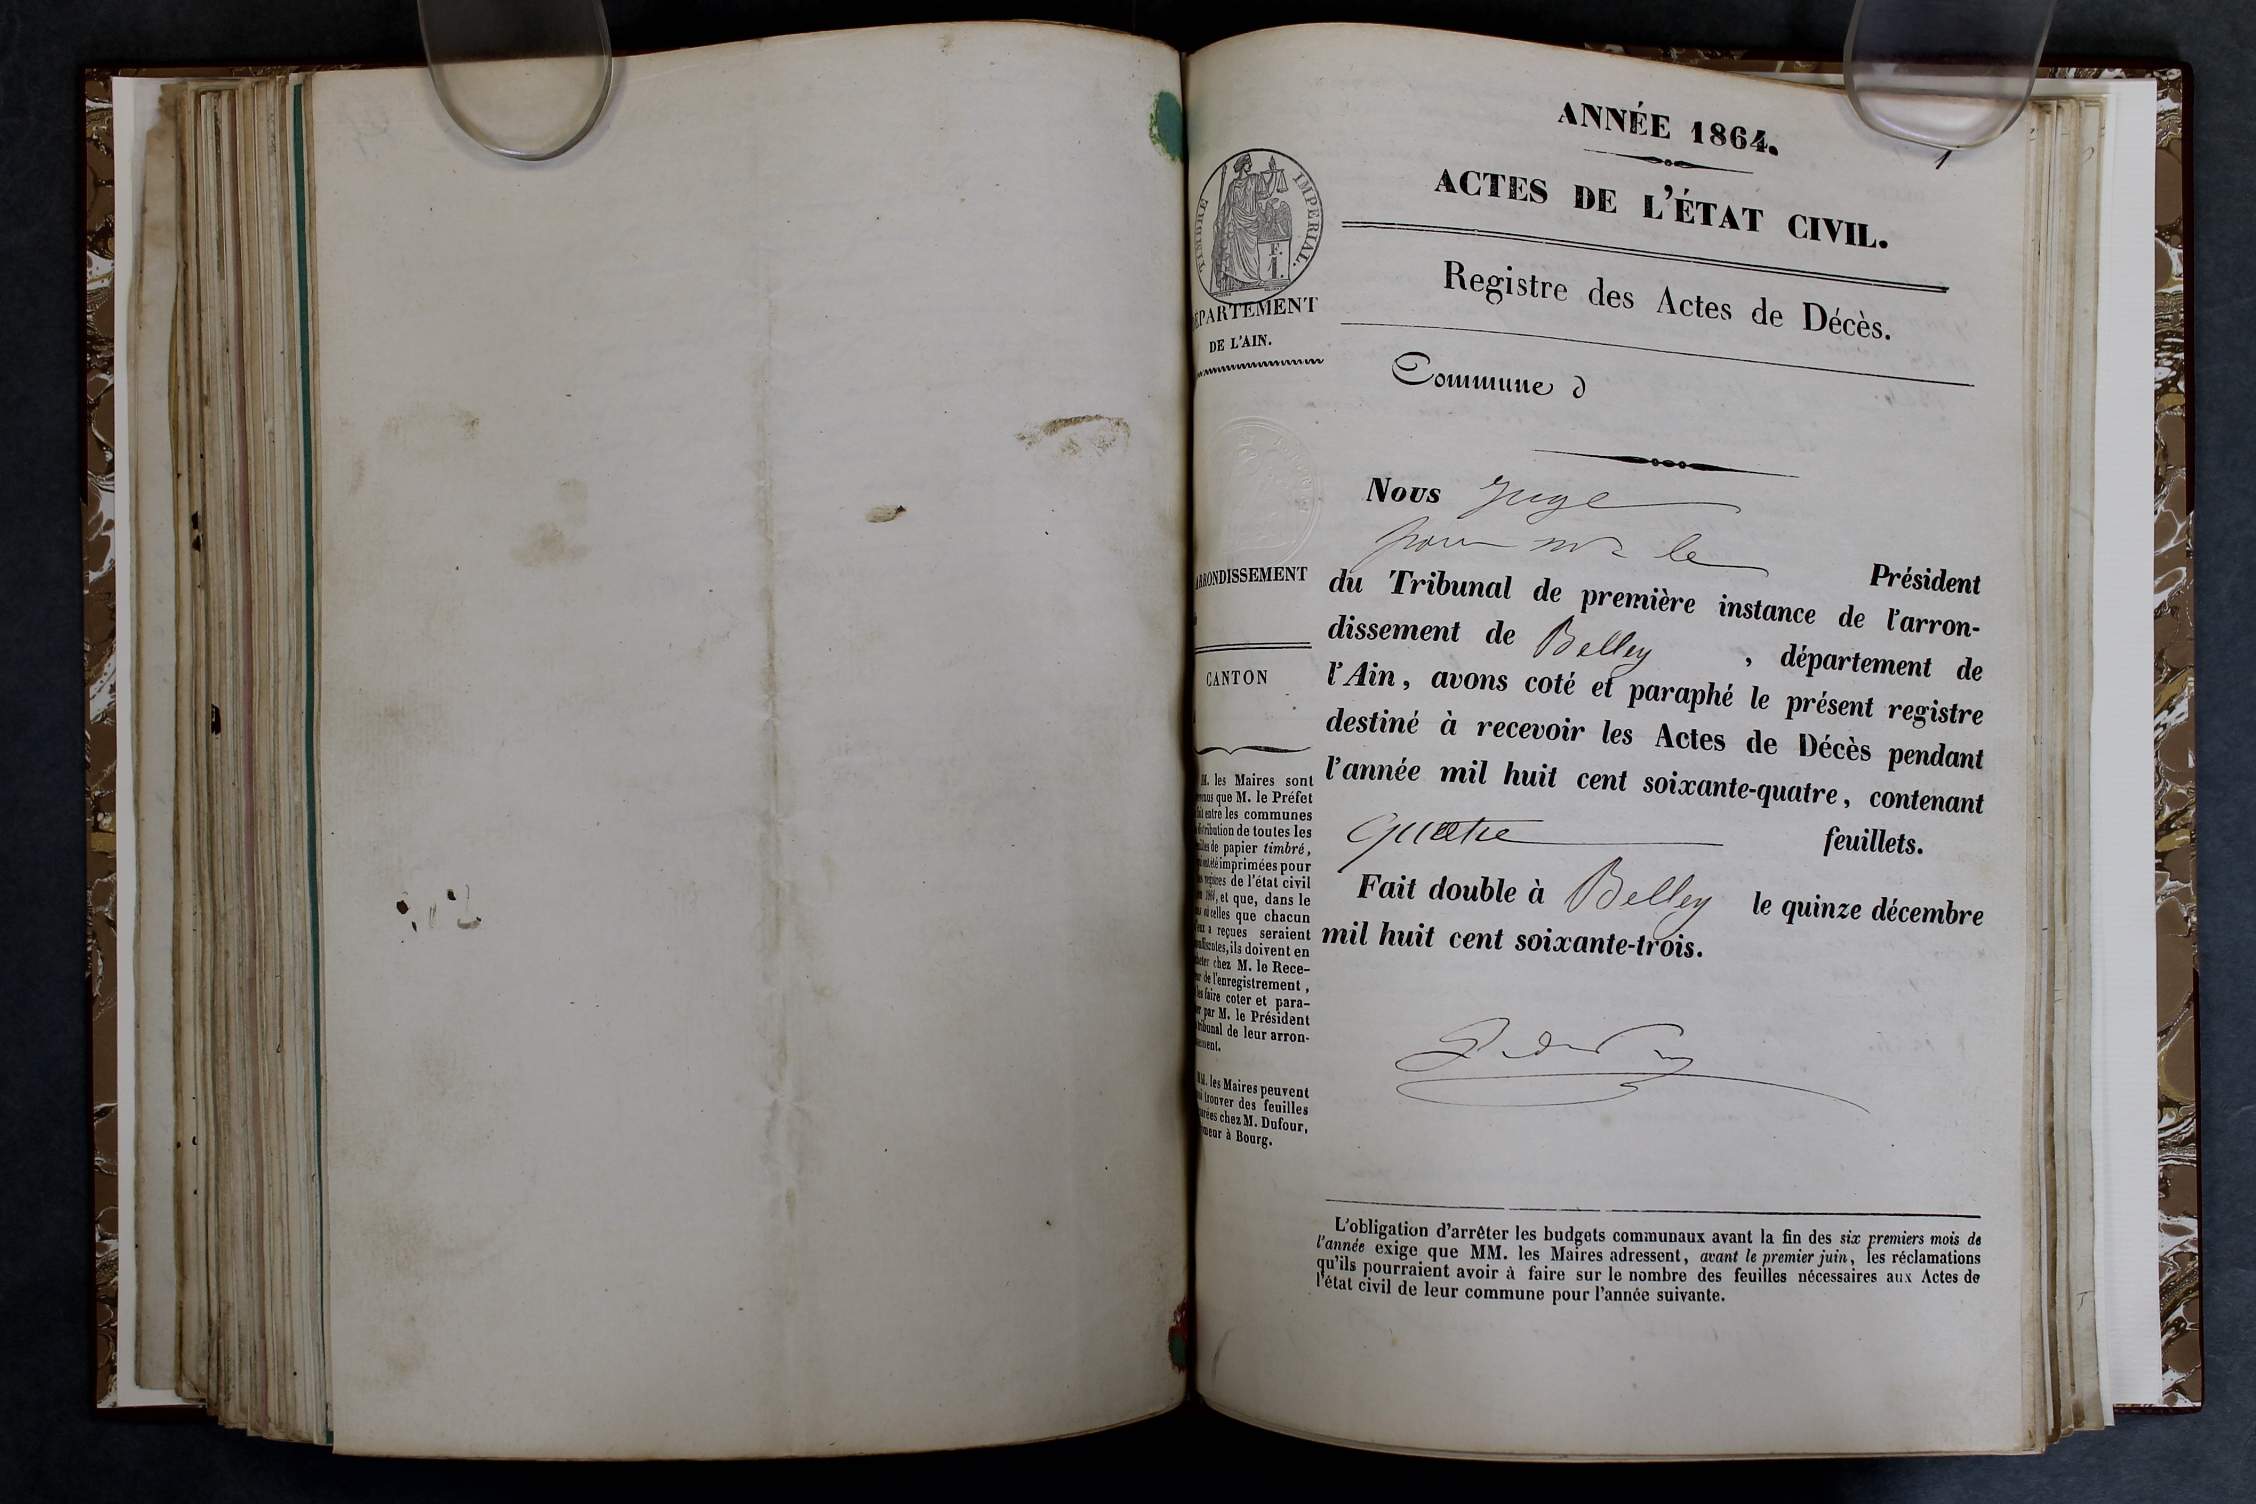 ANNÉE 1864.
1
ACTES DE L'ÉTAT CIVIL.
Registre des Actes de Décès.
Commune d
TIMBRE IMPERIAL.
F.
1.
DÉPARTEMENT
DE L'AIN.
ARRONDISSEMENT
CANTON
M. les Maires sont
que M. le Préfet
fait entre les communes
distribution de toutes les
de papier timbré,
ont été imprimées pour
registres de l'état civil
1864, et que, dans le
où celles que chacun
a reçues seraient
ils doivent en
chez M. le Rece-
de l'enregistrement,
les faire coter et para-
par M. le Président
tribunal de leur arron-
MM. les Maires peuvent
trouver des feuilles
chez M. Dufour,
à Bourg.
Nous Juge
pour Mr le Président
du Tribunal de première instance de l'arron-
dissement de Belley, département de
l'Ain, avons coté et paraphé le présent registre
destiné à recevoir les Actes de Décès pendant
l'année mil huit cent soixante-quatre, contenant
quatre feuillets.
Fait double à Belley le quinze décembre
mil huit cent soixante-trois.
L'obligation d'arrêter les budgets communaux avant la fin des six premiers mois de
l'année exige que MM. les Maires adressent, avant le premier juin, les réclamations
qu'ils pourraient avoir à faire sur le nombre des feuilles nécessaires aux Actes de
l'état civil de leur commune pour l'année suivante.